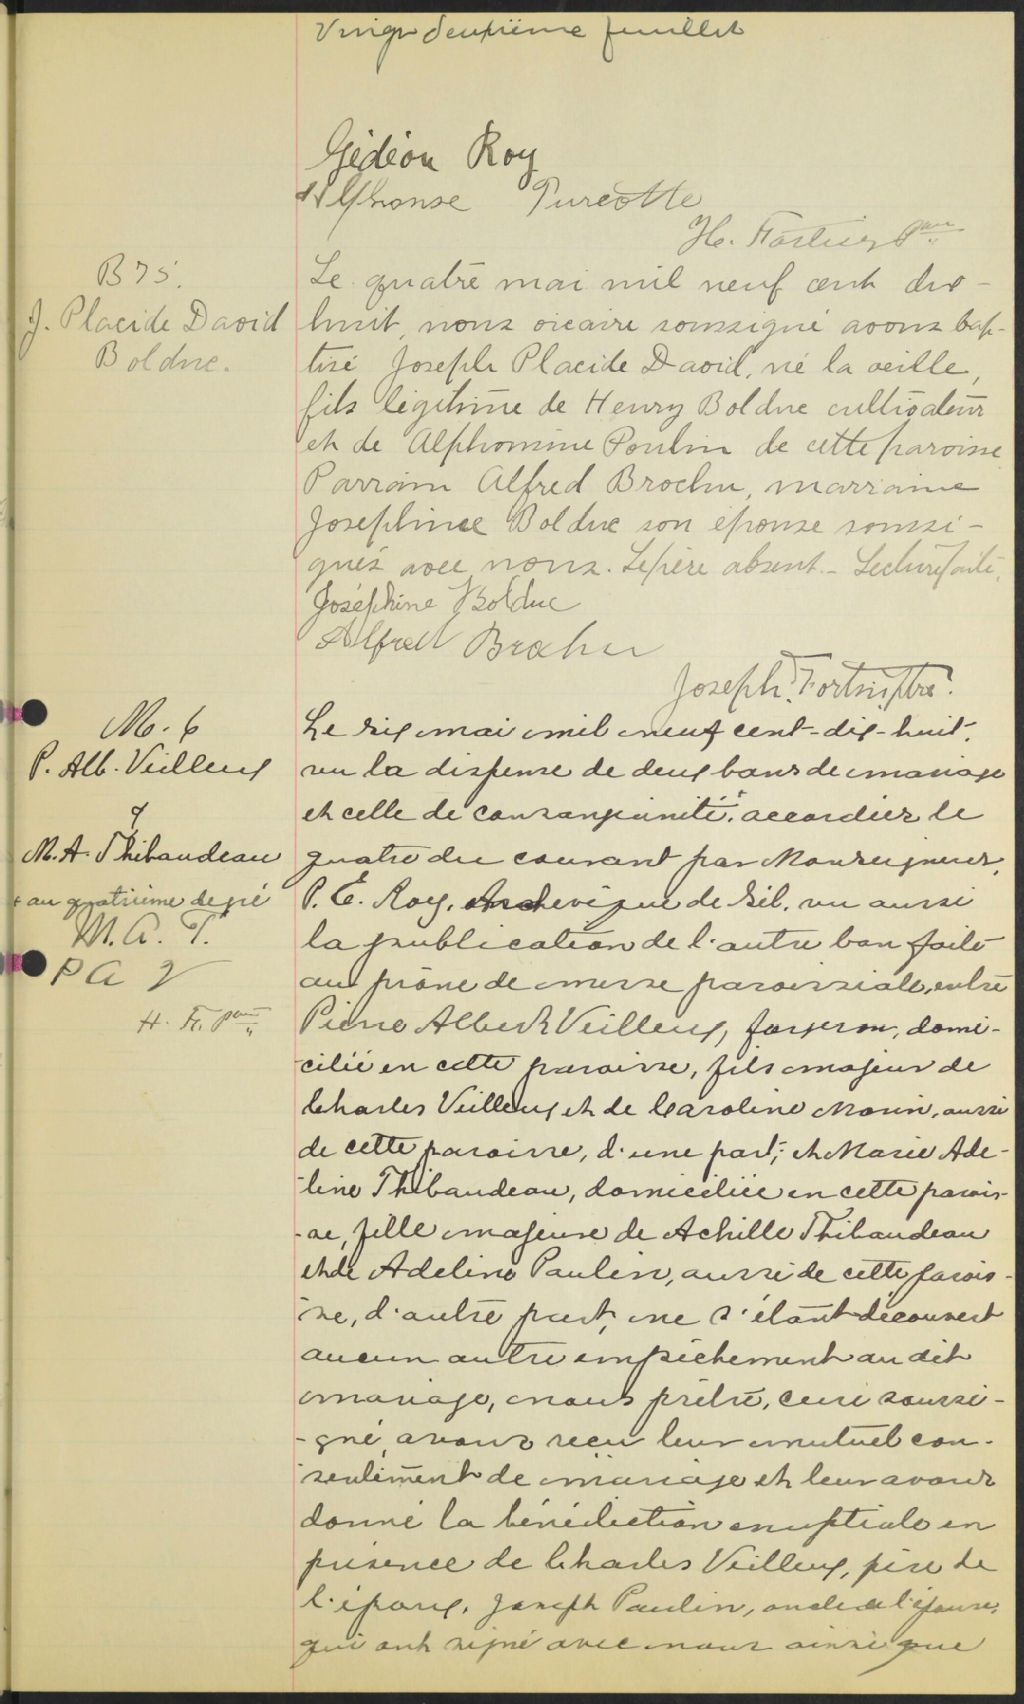 Vingt deuxième feuillet
Gédéon Roy
Alphonse Turcotte
B 75.
J. Placide David
Bolduc.
Le quatre mai mil neuf cent dix-
huit, nous vicaire soussigné avons bap-
tisé Joseph Placide David, né la veille,
fils légitime de Henry Bolduc cultivateur
et de Alphonsine Poulin de cette paroisse
Parrain Alfred Brochu, marraine
Joséphine Bolduc son épouse soussi-
gnés avec nous. Le père absent. - Lecture faite.
Joséphine Bolduc
Alfred Brochu
Joseph Fortin, ptre.
M. 6
P. Alb. Veilleux
&
M. A. Thibaudeau
+ au quatrième degré
M. A. T.
P A V
H. F. Ptre
Le six mai mil neuf cent-dix-huit,
vu la dispense de deux bans de mariage
et celle de consanguinité + accordées le
quatre du courant par Monseigneur,
P. E. Roy, Archevêque de Sél. vu aussi
la publication de l'autre ban faite
au prône de messe paroissiale, entre
Pierre Albert Veilleux, forgeron, domi-
-cilié en cette paroisse, fils majeur de
Charles Veilleux et de Caroline Morin, aussi
de cette paroisse, d'une part; et Marie Ade-
-line Thibaudeau, domiciliée en cette parois-
-se, fille majeure de Achille Thibaudeau
et de Adeline Paulin, aussi de cette parois-
-se, d'autre part, ne s'étant découvert
aucun autre empêchement au dit
mariage, nous prêtre, curé soussi-
-gné, avons reçu leur mutuel con-
-sentement de mariage et leur avons
donné la bénédiction nuptiale en
présence de Charles Veilleux, père de
l'époux, Joseph Paulin, oncle de l'épouse,
qui ont signé avec nous ainsi que